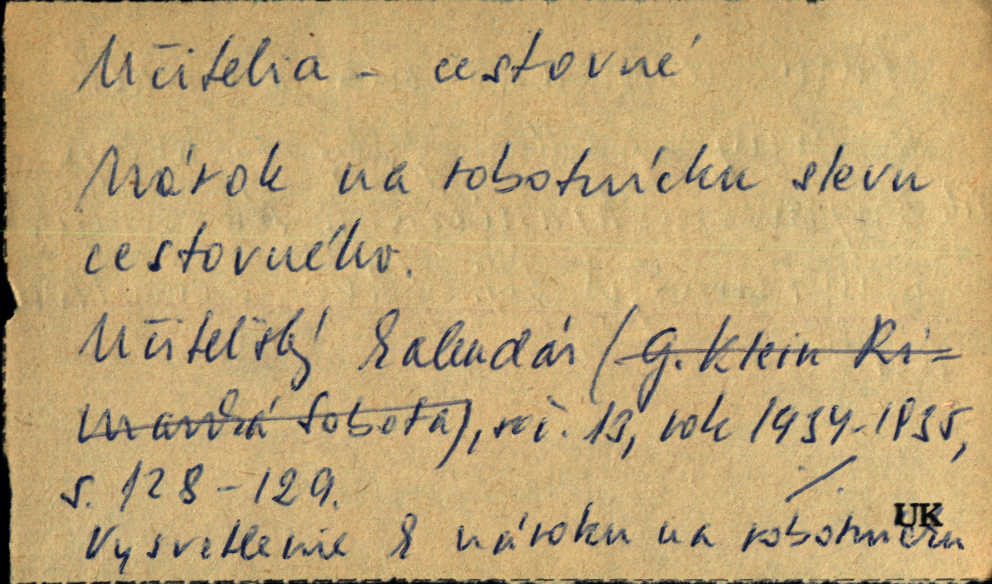 Učitelia - cestovné
Nárok na robotnícku slevu
cestovného.
Učiteľský kalendár (G. Klein Ri-
mavská Sobota), roč. 13, rok 1934-1935,
s. 128-129. ./.
UK
Vysvetlenie k nároku na robotnícku